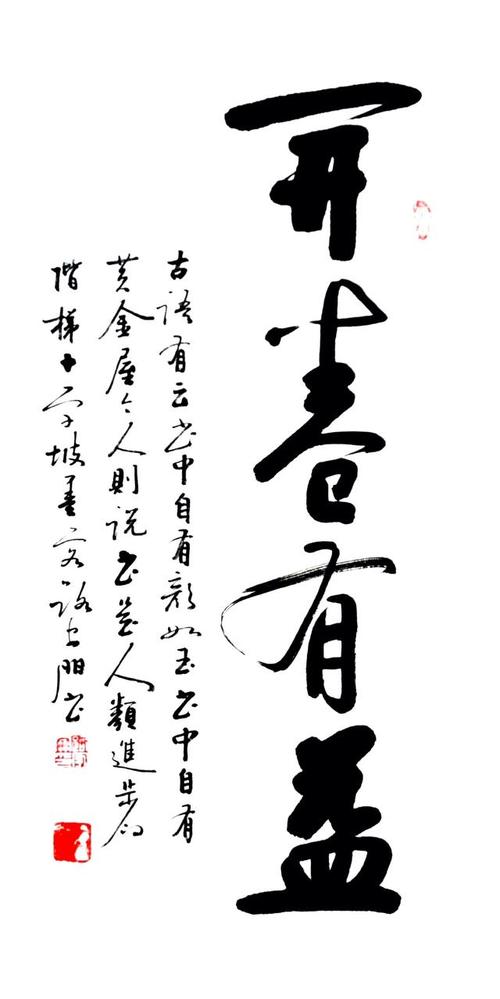 开卷有益
古语有云书中自有颜如玉书中自有
黄金屋今人則说书是人類進步的
階梯十字坡墨客路阳书